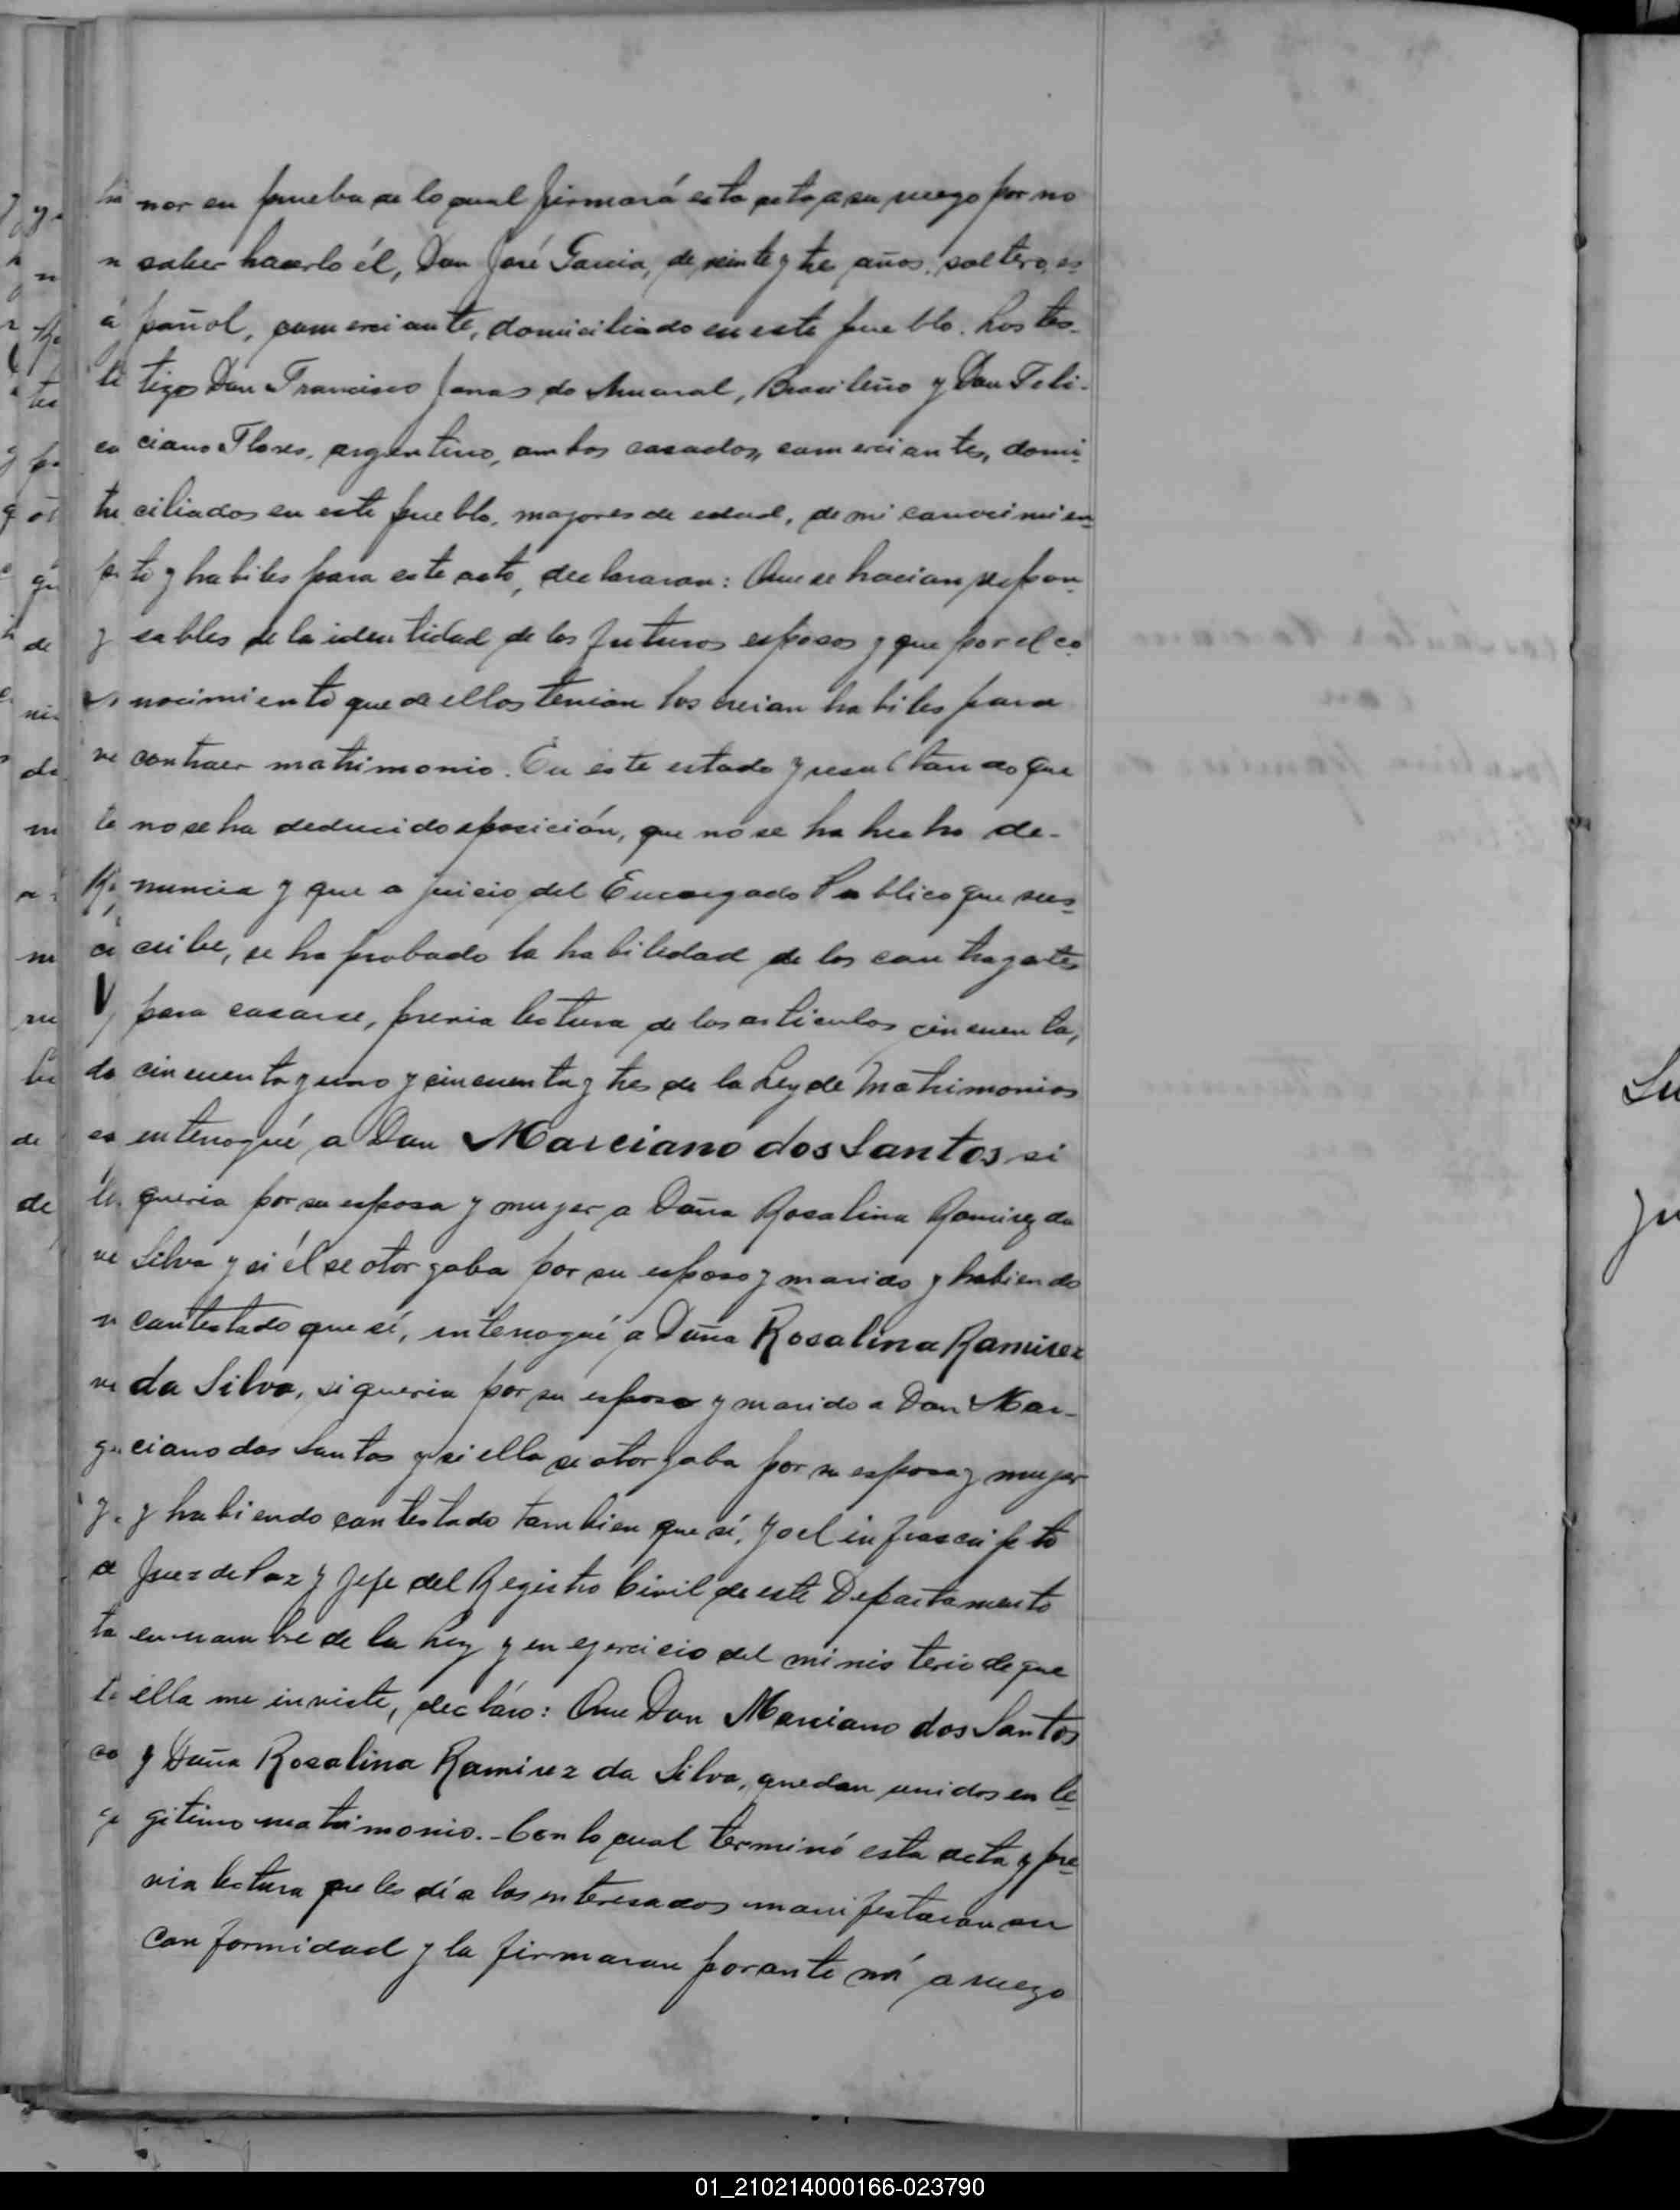 nor en prueba de lo cual firmará esta acta a su ruego por no
saber hacerlo él, Don José Garcia, de veinte y tres años, soltero, es-
pañol, comerciante, domiciliado en este pueblo. Los tes-
tigos Don Francisco Jonas do Amaral, Brasileño y Don Feli-
ciano Flores, argentino, ambos casados, comerciantes, domi-
ciliados en este pueblo, mayores de edad, de mi conocimien-
to y habiles para este acto, declararon: Que se hacian respon-
sables de la identidad de los futuros esposos y que por el co-
nocimiento que de ellos tenian los creian habiles para
contraer matrimonio. En este estado y resultando que
no se ha deducido oposición, que no se ha hecho de-
nuncia y que a juicio del Encargado Publico que sus-
cribe, se ha probado la habilidad de los contrayentes
para casarse, previa lectura de los articulos cincuenta,
cincuenta y uno y cincuenta y tres de la Ley de Matrimonios
interrogué a Don Marciano dos Santos si
queria por su esposa y mujer a Doña Rosalina Ramirez da
Silva y si él se otorgaba por su esposo y marido y habiendo
contestado que sí, interrogué a Doña Rosalina Ramirez
da Silva, si queria por su esposo y marido a Don Mar-
ciano dos Santos y si ella se otorgaba por su esposa y mujer
y habiendo contestado tambien que sí, yo el infrascripto
Juez de Paz y Jefe del Registro Civil de este Departamento
en nombre de la Ley y en ejercicio del ministerio de que
ella me inviste, declaro: Que Don Marciano dos Santos
y Doña Rosalina Ramirez da Silva, quedan unidos en le-
gitimo matrimonio.- Con lo cual terminó esta acta y pre-
via lectura que les dí a los interesados manifestaron su
conformidad y la firmaron por ante mí a ruego
01_210214000166-023790